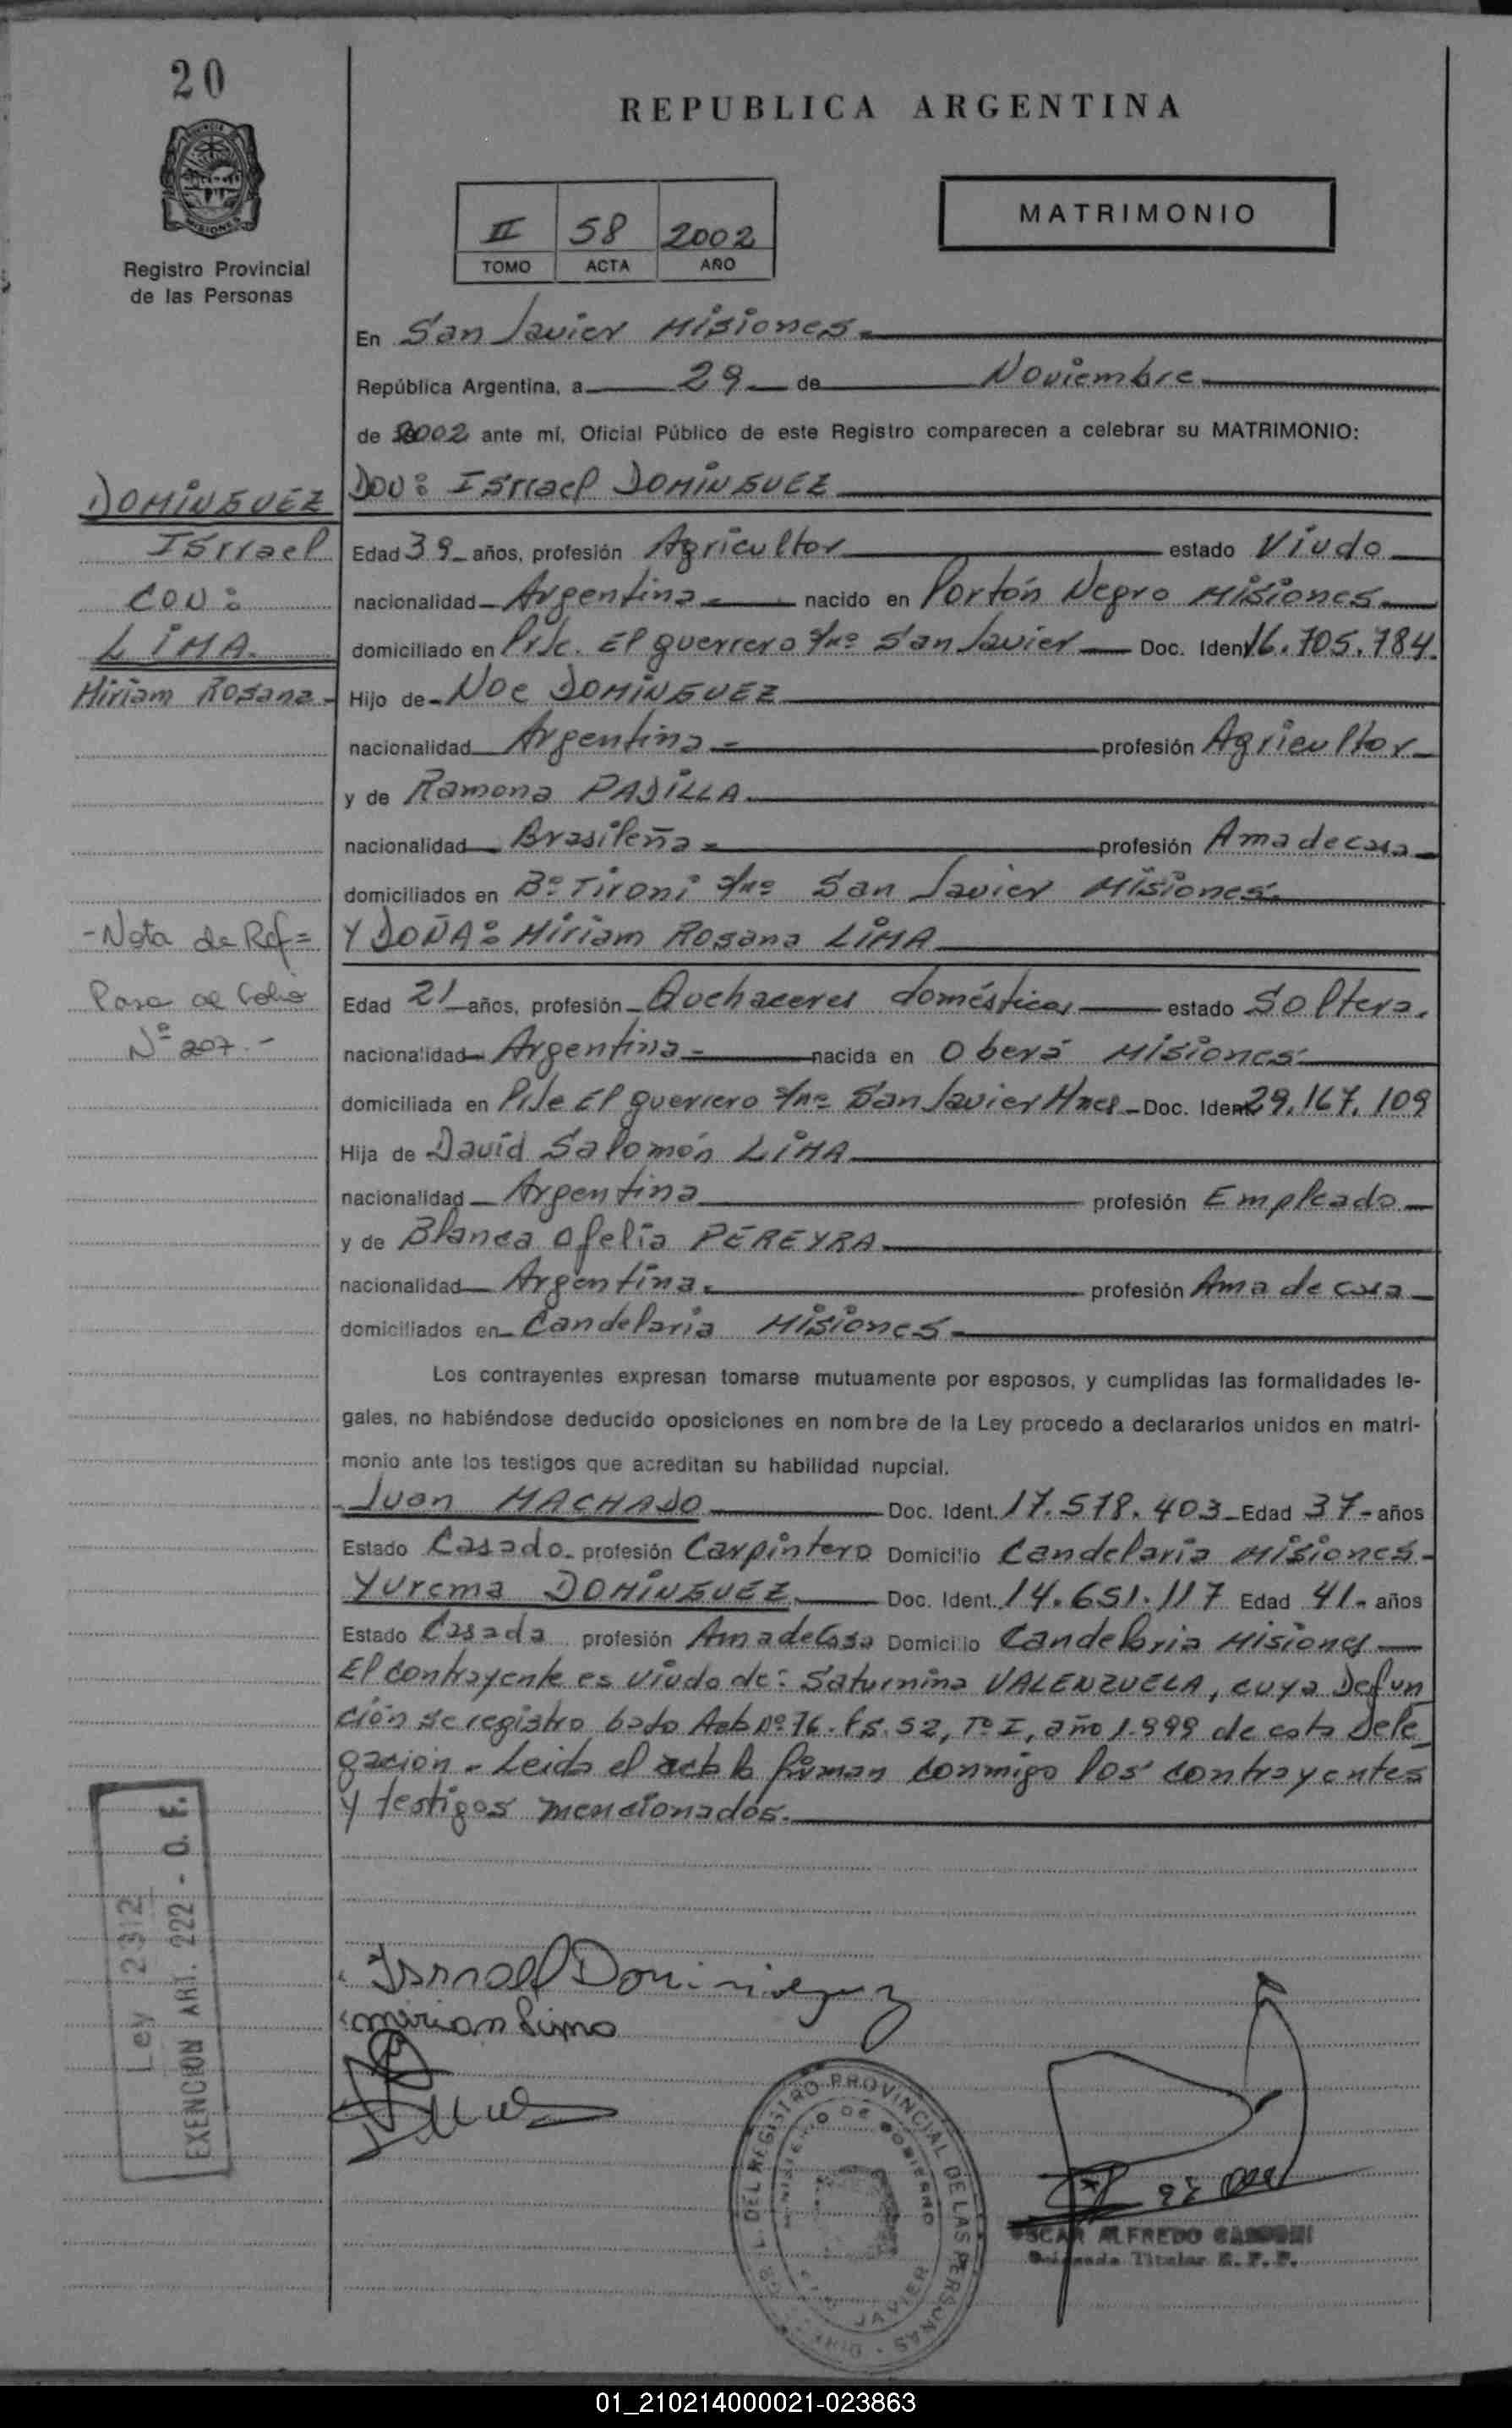 20
REPUBLICA ARGENTINA
MATRIMONIO
II 58 2002
TOMO ACTA AÑO
Registro Provincial
de las Personas
En San Javier Misiones.
República Argentina, a 29 de Noviembre
de 2002 ante mí, Oficial Público de este Registro comparecen a celebrar su MATRIMONIO:
DOMINGUEZ
Isrrael
CON:
LIMA.
Miriam Rosana
DON: Isrrael DOMINGUEZ
Edad 39 años, profesión Agricultor estado Viudo
nacionalidad Argentina nacido en Portón Negro Misiones
domiciliado en El guerrero s/nº San Javier Doc. Ident 16.705.784.
Hijo de Noe DOMINGUEZ
nacionalidad Argentina profesión Agricultor
y de Ramona PADILLA
nacionalidad Brasileña profesión Ama de casa
domiciliados en Bº Tironi s/nº San Javier Misiones.
- Nota de Ref=
Pasa al Folio
Nº 207.-
Y DOÑA: Miriam Rosana LIMA
Edad 21 años, profesión Quehaceres domésticos estado Soltera.
nacionalidad Argentina nacida en Oberá Misiones
domiciliada en El guerrero s/nº San Javier Mnes Doc. Ident. 29.167.109
Hija de David Salomón LIMA
nacionalidad Argentina profesión Empleado
y de Blanca Ofelia PEREYRA
nacionalidad Argentina. profesión Ama de casa
domiciliados en Candelaria Misiones
Los contrayentes expresan tomarse mutuamente por esposos, y cumplidas las formalidades le-
gales, no habiéndose deducido oposiciones en nombre de la Ley procedo a declararlos unidos en matri-
monio ante los testigos que acreditan su habilidad nupcial.
Juan MACHADO Doc. Ident. 17.578.403 Edad 37 años
Estado Casado. profesión Carpintero Domicilio Candelaria Misiones
Yurema DOMINGUEZ Doc. Ident. 14.651.117 Edad 41 años
Estado Casada profesión Ama de Casa Domicilio Candelaria Misiones
El contrayente es viudo de: Saturnina VALENZUELA, cuya Defun
ción se registro bajo Acta Nº 76. Fs. 52, Tº I, año 1.999 de esta Dele
gación. Leida el acta la firman conmigo los contrayentes
y testigos mencionados.
Ley 2312
EXENCION ART. 222 - O. F.
Isrrael Dominguez
mirian Lima
DEL REGISTRO PROVINCIAL DE LAS PERSONAS
MINISTERIO DE GOBIERNO
JAVIER
OSCAR ALFREDO
Titular R. P. P.
01_210214000021-023863